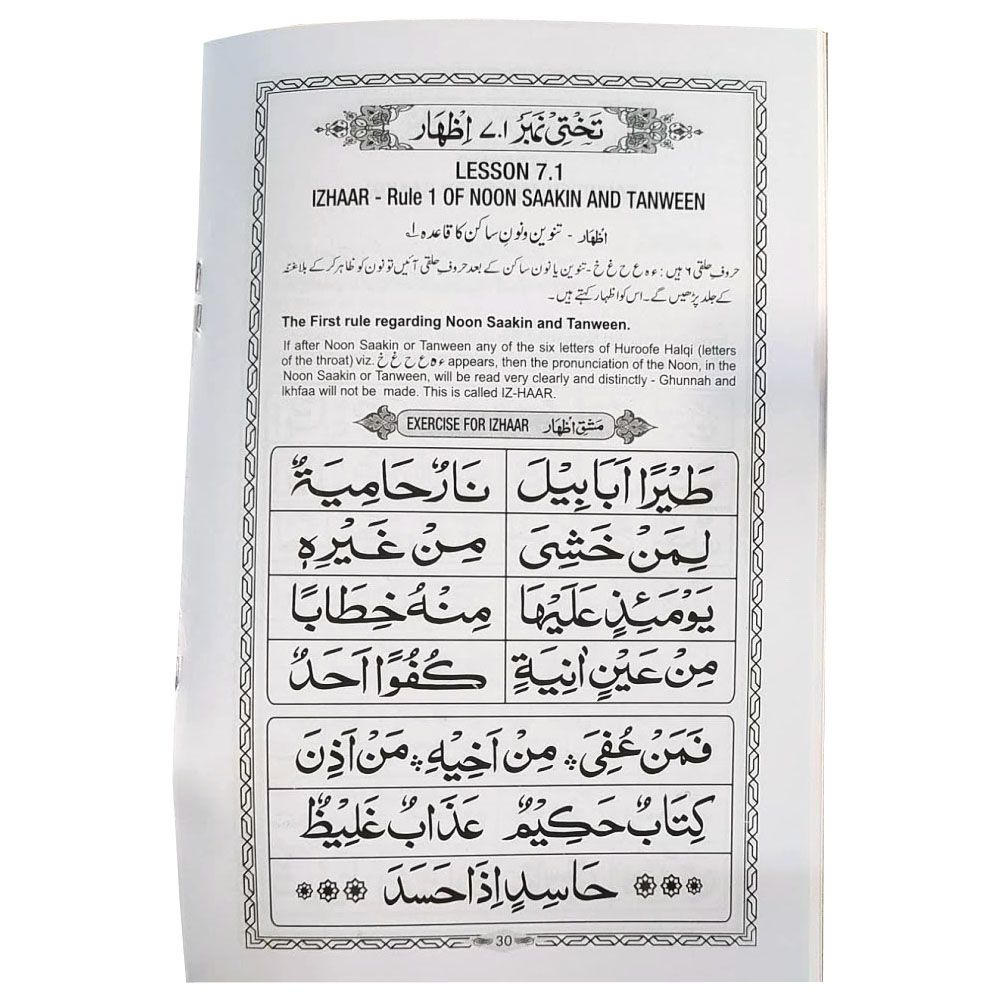 تختی نمبر ۷.۱ اظهار
LESSON 7.1
IZHAAR - Rule 1 OF NOON SAAKIN AND TANWEEN
اظہار - تنوین و نونِ ساکن کا قاعدہ ۱
حروفِ حلقی ۶ ہیں : ء ہ ع ح غ خ - تنوین یا نون ساکن کے بعد حروفِ حلقی آئیں تو نون کو ظاہر کر کے بلا غنہ
کے جلد پڑھیں گے ۔ اس کو اظہار کہتے ہیں ۔
The First rule regarding Noon Saakin and Tanween.
If after Noon Saakin or Tanween any of the six letters of Huroofe Halqi (letters
of the throat) viz. ء ہ ع ح غ خ appears, then the pronunciation of the Noon, in the
Noon Saakin or Tanween, will be read very clearly and distinctly - Ghunnah and
Ikhfaa will not be made. This is called IZ-HAAR.
EXERCISE FOR IZHAAR مشقِ اظہار
طَيْرًا اَبَابِيْلَ نَارٌ حَامِيَةٌ
لِمَنْ خَشِیَ مِنْ غَيْرِهٖ
يَوْمَئِذٍ عَلَيْهَا مِنْهُ خِطَابًا
مِنْ عَيْنٍ اٰنِيَةٍ كُفُوًا اَحَدٌ
فَمَنْ عُفِیَ ۞ مِنْ اَخِيْهِ ۞ مَنْ اَذِنَ
كِتَابٌ حَكِيْمٌ عَذَابٌ غَلِيْظٌ
حَاسِدٍ اِذَا حَسَدَ
30